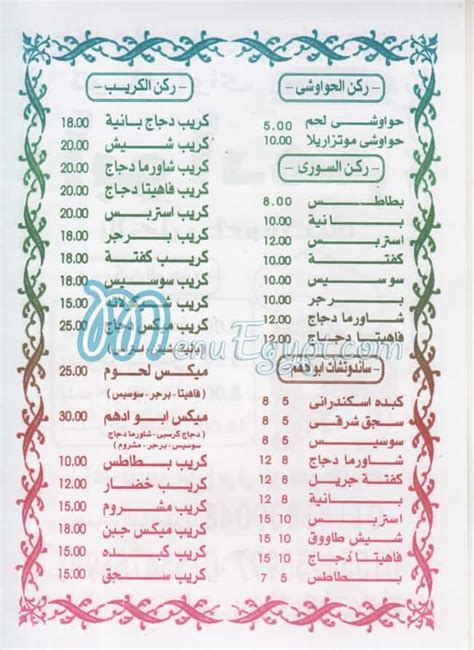 - ركن الحواوشى -
حواوشى لحم 5.00
حواوشى موتزاريلا 10.00
- ركن السورى -
بطاطس 8.00
بانية 10.00
استربس 12.00
كفتة 10.00
سوسيس 10.00
برجر 10.00
شاورما دجاج 12.00
فاهيتا دجاج 12.00
- ساندوتشات ابو ادهم -
كبده اسكندرانى 5 8
سجق شرقى 5 8
سوسيس 5 8
شاورما دجاج 8 12
كفتة جريل 8 12
بانية 8 12
استربس 10 15
شيش طاووق 10 15
فاهيتا دجاج 10 15
بطاطس 5 7
- ركن الكريب -
كريب دجاج بانية 18.00
كريب شيش 20.00
كريب شاورما دجاج 20.00
كريب فاهيتا دجاج 20.00
كريب استربس 20.00
كريب برجر 18.00
كريب كفتة 18.00
كريب سوسيس 18.00
كريب 15.00
كريب ميكس دجاج 25.00
(بانية شيش استربس)
ميكس لحوم 25.00
(فاهيتا - برجر - سوسيس)
ميكس ابو ادهم 30.00
(دجاج كرسبى - شاورما دجاج
سوسيس - برجر - مشروم)
كريب بطاطس 10.00
كريب خضار 12.00
كريب مشروم 15.00
كريب ميكس جبن 18.00
كريب كبده 15.00
كريب سجق 15.00
MenuEgypt.com